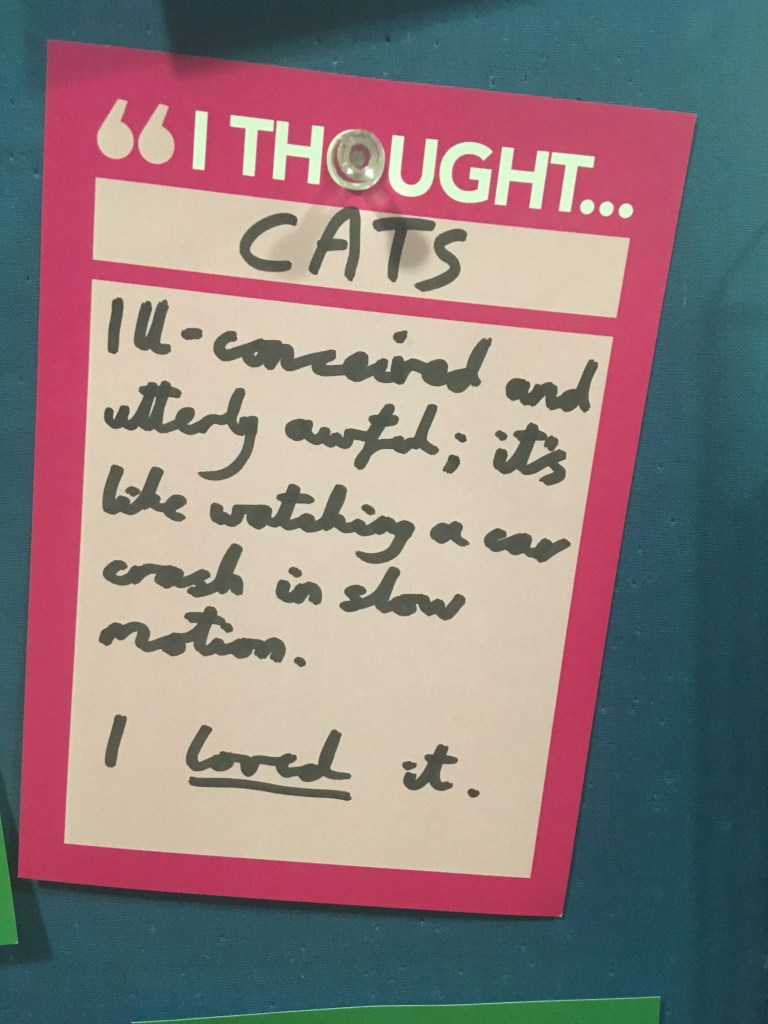 “I THOUGHT...
CATS
Ill-conceived and
utterly awful; it's
like watching a car
crash in slow
motion.
I loved it.